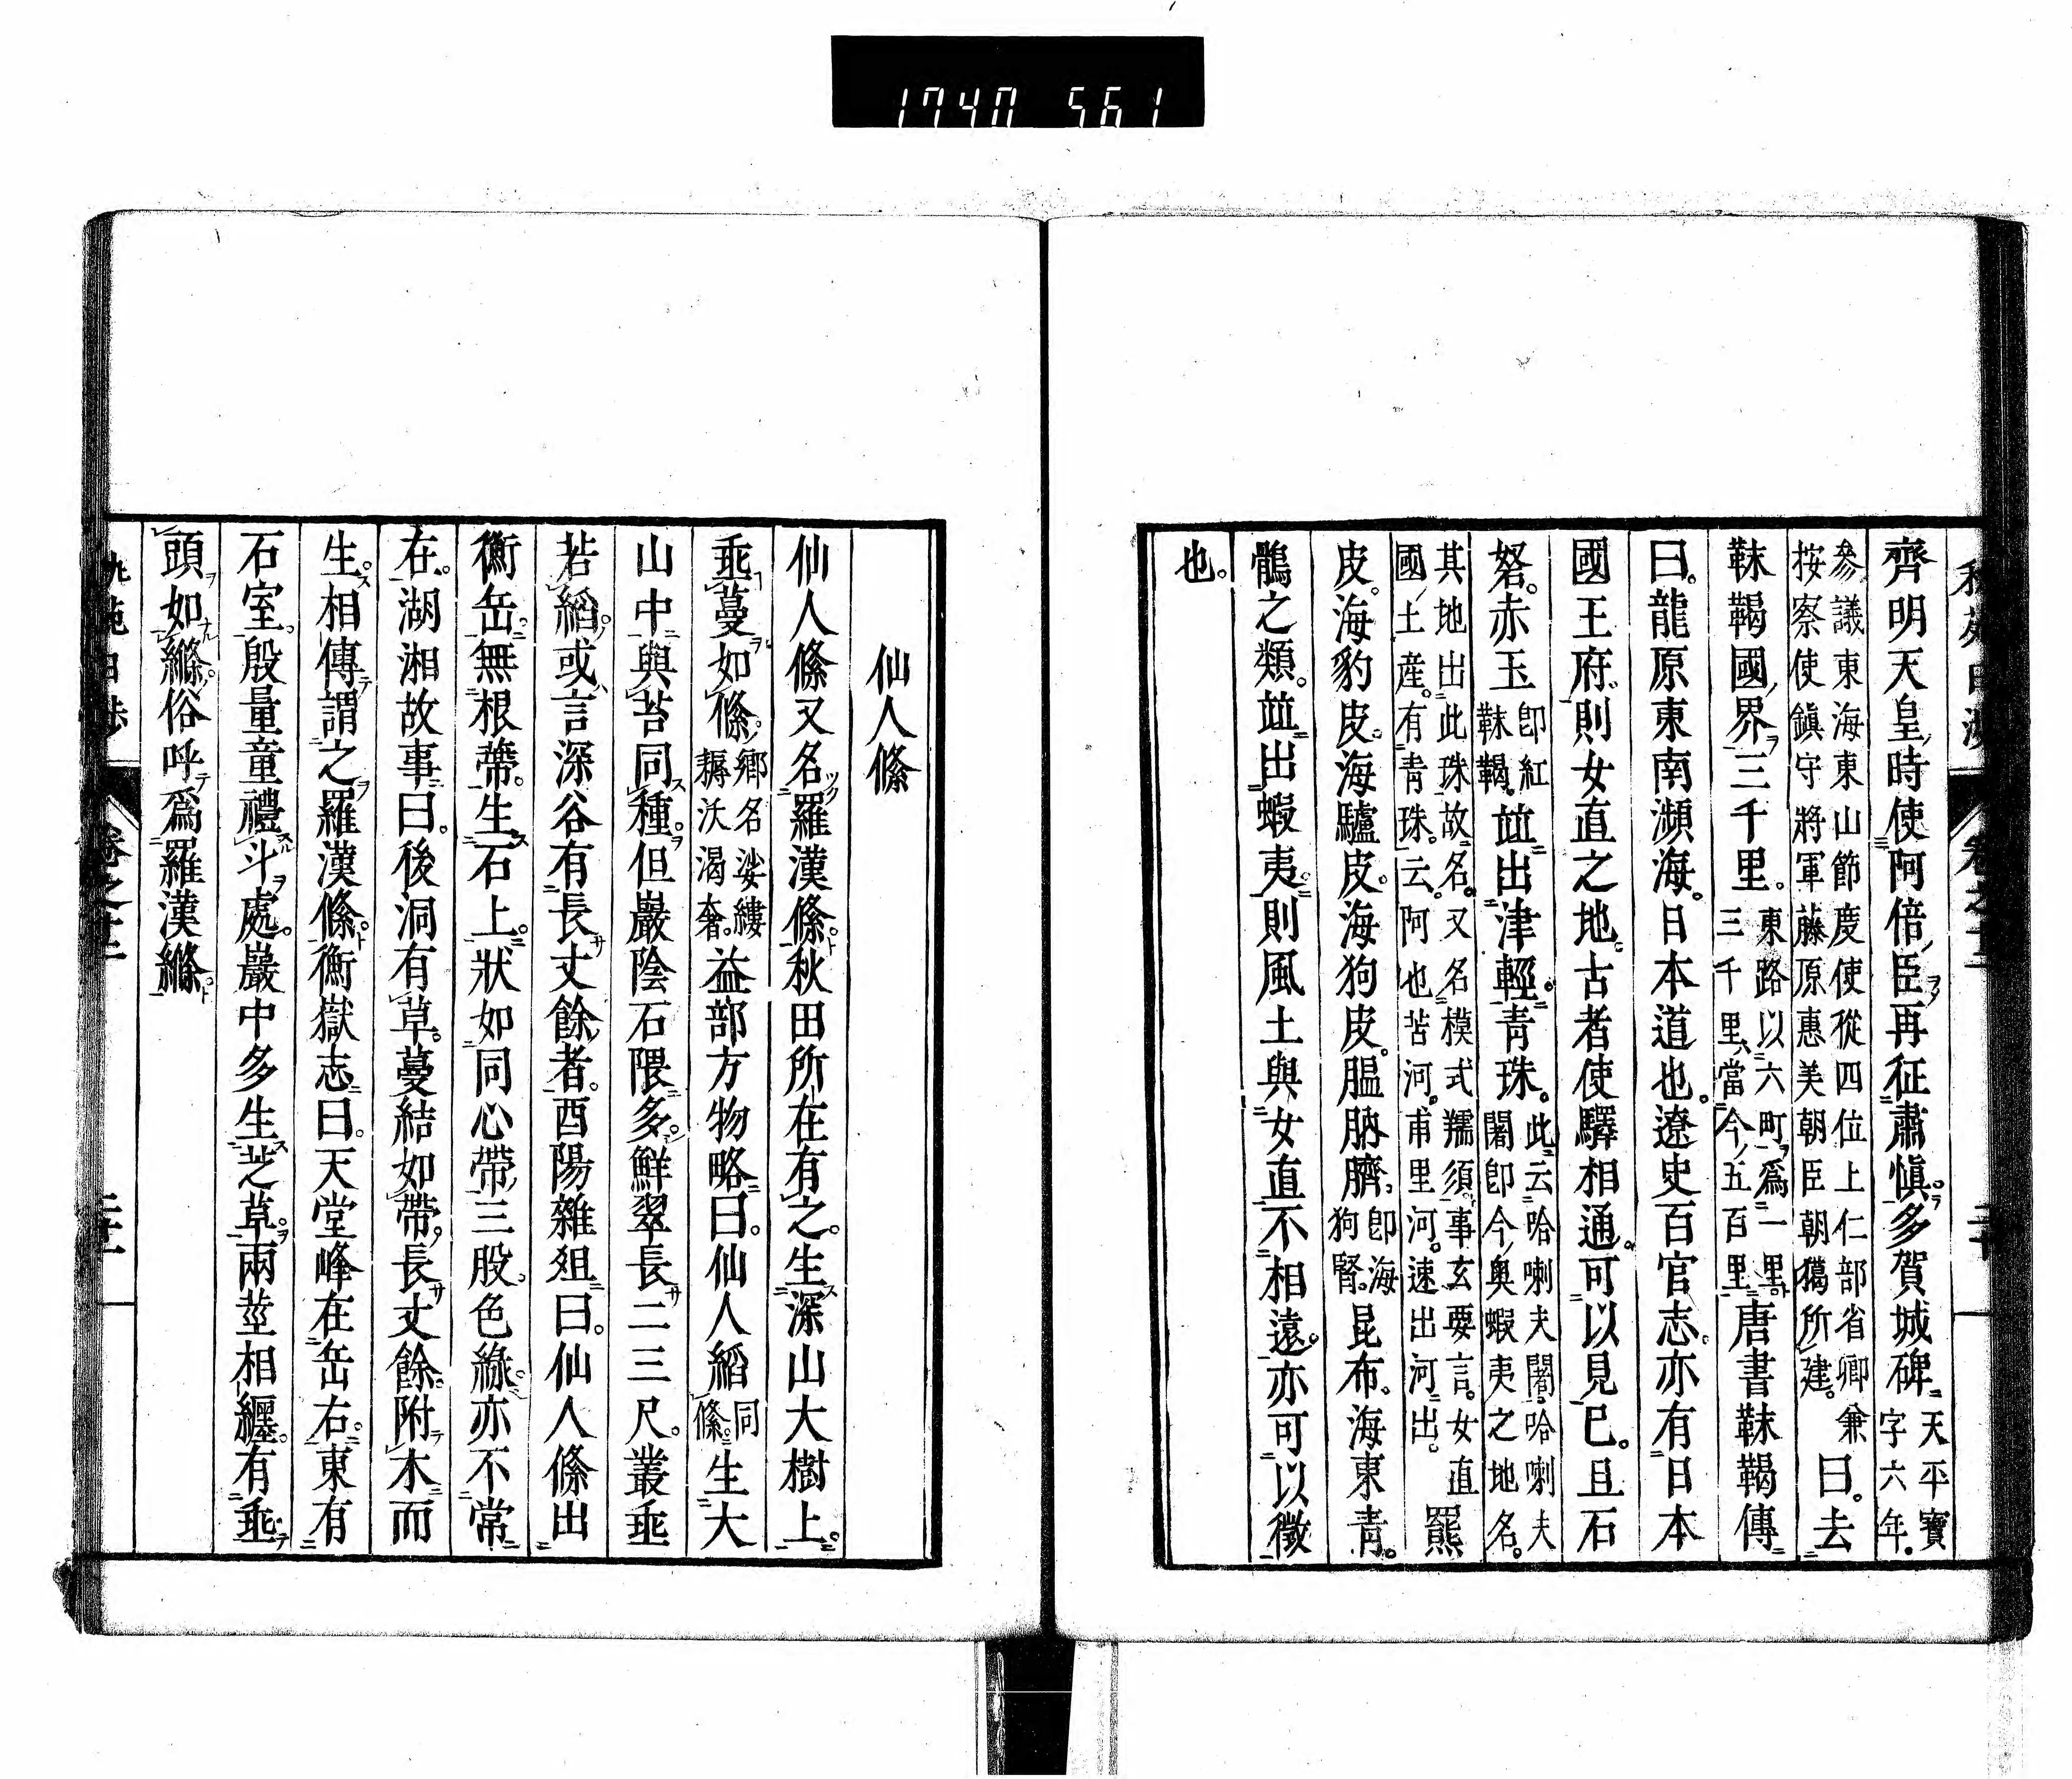 1740 561
齊明天皇時使阿倍臣再征肅愼多賀城碑天平寶字六年
參議東海東山節度使從四位上仁部省卿兼按察使鎭守將軍藤原惠美朝臣朝獦所建曰去
靺鞨國界三千里東路以六町爲一里三千里當今五百里唐書靺鞨傳
曰龍原東南瀕海日本道也遼史百官志亦有日本
國王府則女直之地古者使驛相通可以見已且石
砮赤玉卽紅靺鞨竝出津輕靑珠此云哈喇夫闍哈喇夫闍卽今奧蝦夷之地名
其地出此珠故名又名模式獳須事玄要言女直國土産有靑珠云阿也苦河甫里河速出河出羆
皮海豹皮海驢皮海狗皮膃肭臍卽海狗腎昆布海東靑
鶻之類竝出蝦夷則風土與女直不相遠亦可以徵
也
卷之十二
仙人絛
仙人絛又名羅漢絛秋田所在有之生深山大樹上
垂蔓如絛鄕名娑縷耨沃渴奢益部方物略曰仙人縚同絛生大
山中與苔同種但巖陰石隈多鮮翠長二三尺叢垂
若縚或言深谷有長丈餘者酉陽雜俎曰仙人絛出
衡岳無根蔕生石上狀如同心帶三股色綠亦不常
在湖湘故事曰後洞有草蔓結如帶長丈餘附木而
生相傳謂之羅漢絛衡嶽志曰天堂峰在岳右東有
石室殷量童禮斗處巖中多生芝草兩莖相纏有垂
頭如縧俗呼爲羅漢縧